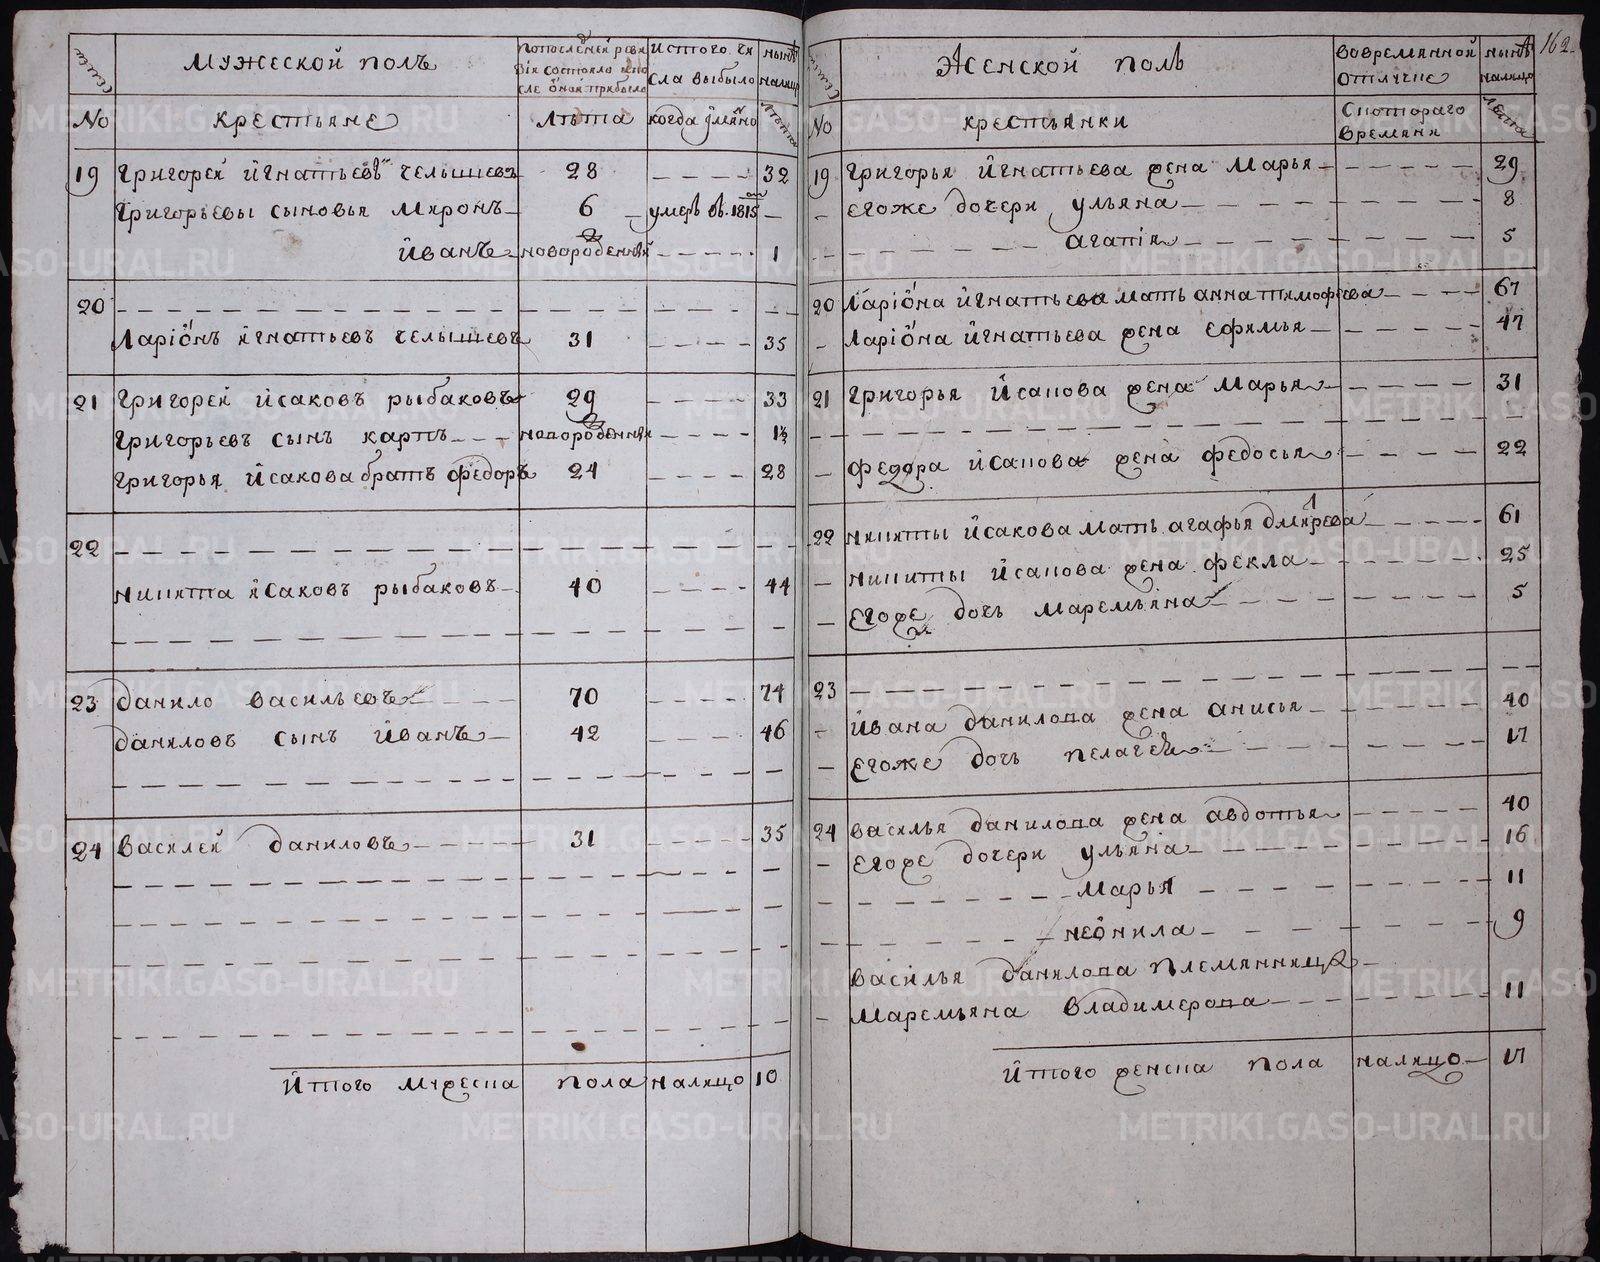 162.
семьи
Мужеской полъ
Попоследней реви
зіи состояло ипо
сле оной прибыло
Истого чи
сла выбыло
нынѣ
налицо
№
крестьяне
Лѣта
когда имянно
лѣта
19 Григорей Игнатьевъ Челышевъ 28 32
Григорьевы сыновья Миронъ 6 умеръ въ 1815 м
Иванъ новорожденный 1
20
Ларіонъ Игнатьевъ Челышевъ 31 35
21 Григорей Исаковъ рыбаковъ 29 33
Григорьевъ сынъ карпъ новорожденный 1½
Григорья Исакова братъ федоръ 24 28
22
никита Исаковъ рыбаковъ 40 44
23 Данило Васильевъ 70 74
Даниловъ сынъ Иванъ 42 46
24 Василей Даниловъ 31 35
Итого мужеска пола налицо 10
семьи
Женской полъ
Вовремянной
отлучке
нынѣ
налицо
№
крестьянки
Скотораго
времяни
лѣта
19 Григорья Игнатьева жена Марья 29
Егоже дочери ульяна 8
агапія 5
20 Ларіона Игнатьева мать анна тимофеева 67
Ларіона Игнатьева жена Ефимья 47
21 Григорья Исакова жена Марья 31
федора Исакова жена федосья 22
22 никиты Исакова мать агафья дмитрева 61
никиты Исакова жена фекла 25
Егоже дочь Маремьяна 5
23
Ивана данилова жена анисья 40
Егоже дочь пелагея 17
24 василья данилова жена авдотья 40
Егоже дочери ульяна 16
Марья 11
неонила 9
василья данилова племянница
Маремьяна Владимерова 11
Итого женска пола налицо 17
METRIKI.GASO-URAL.RU